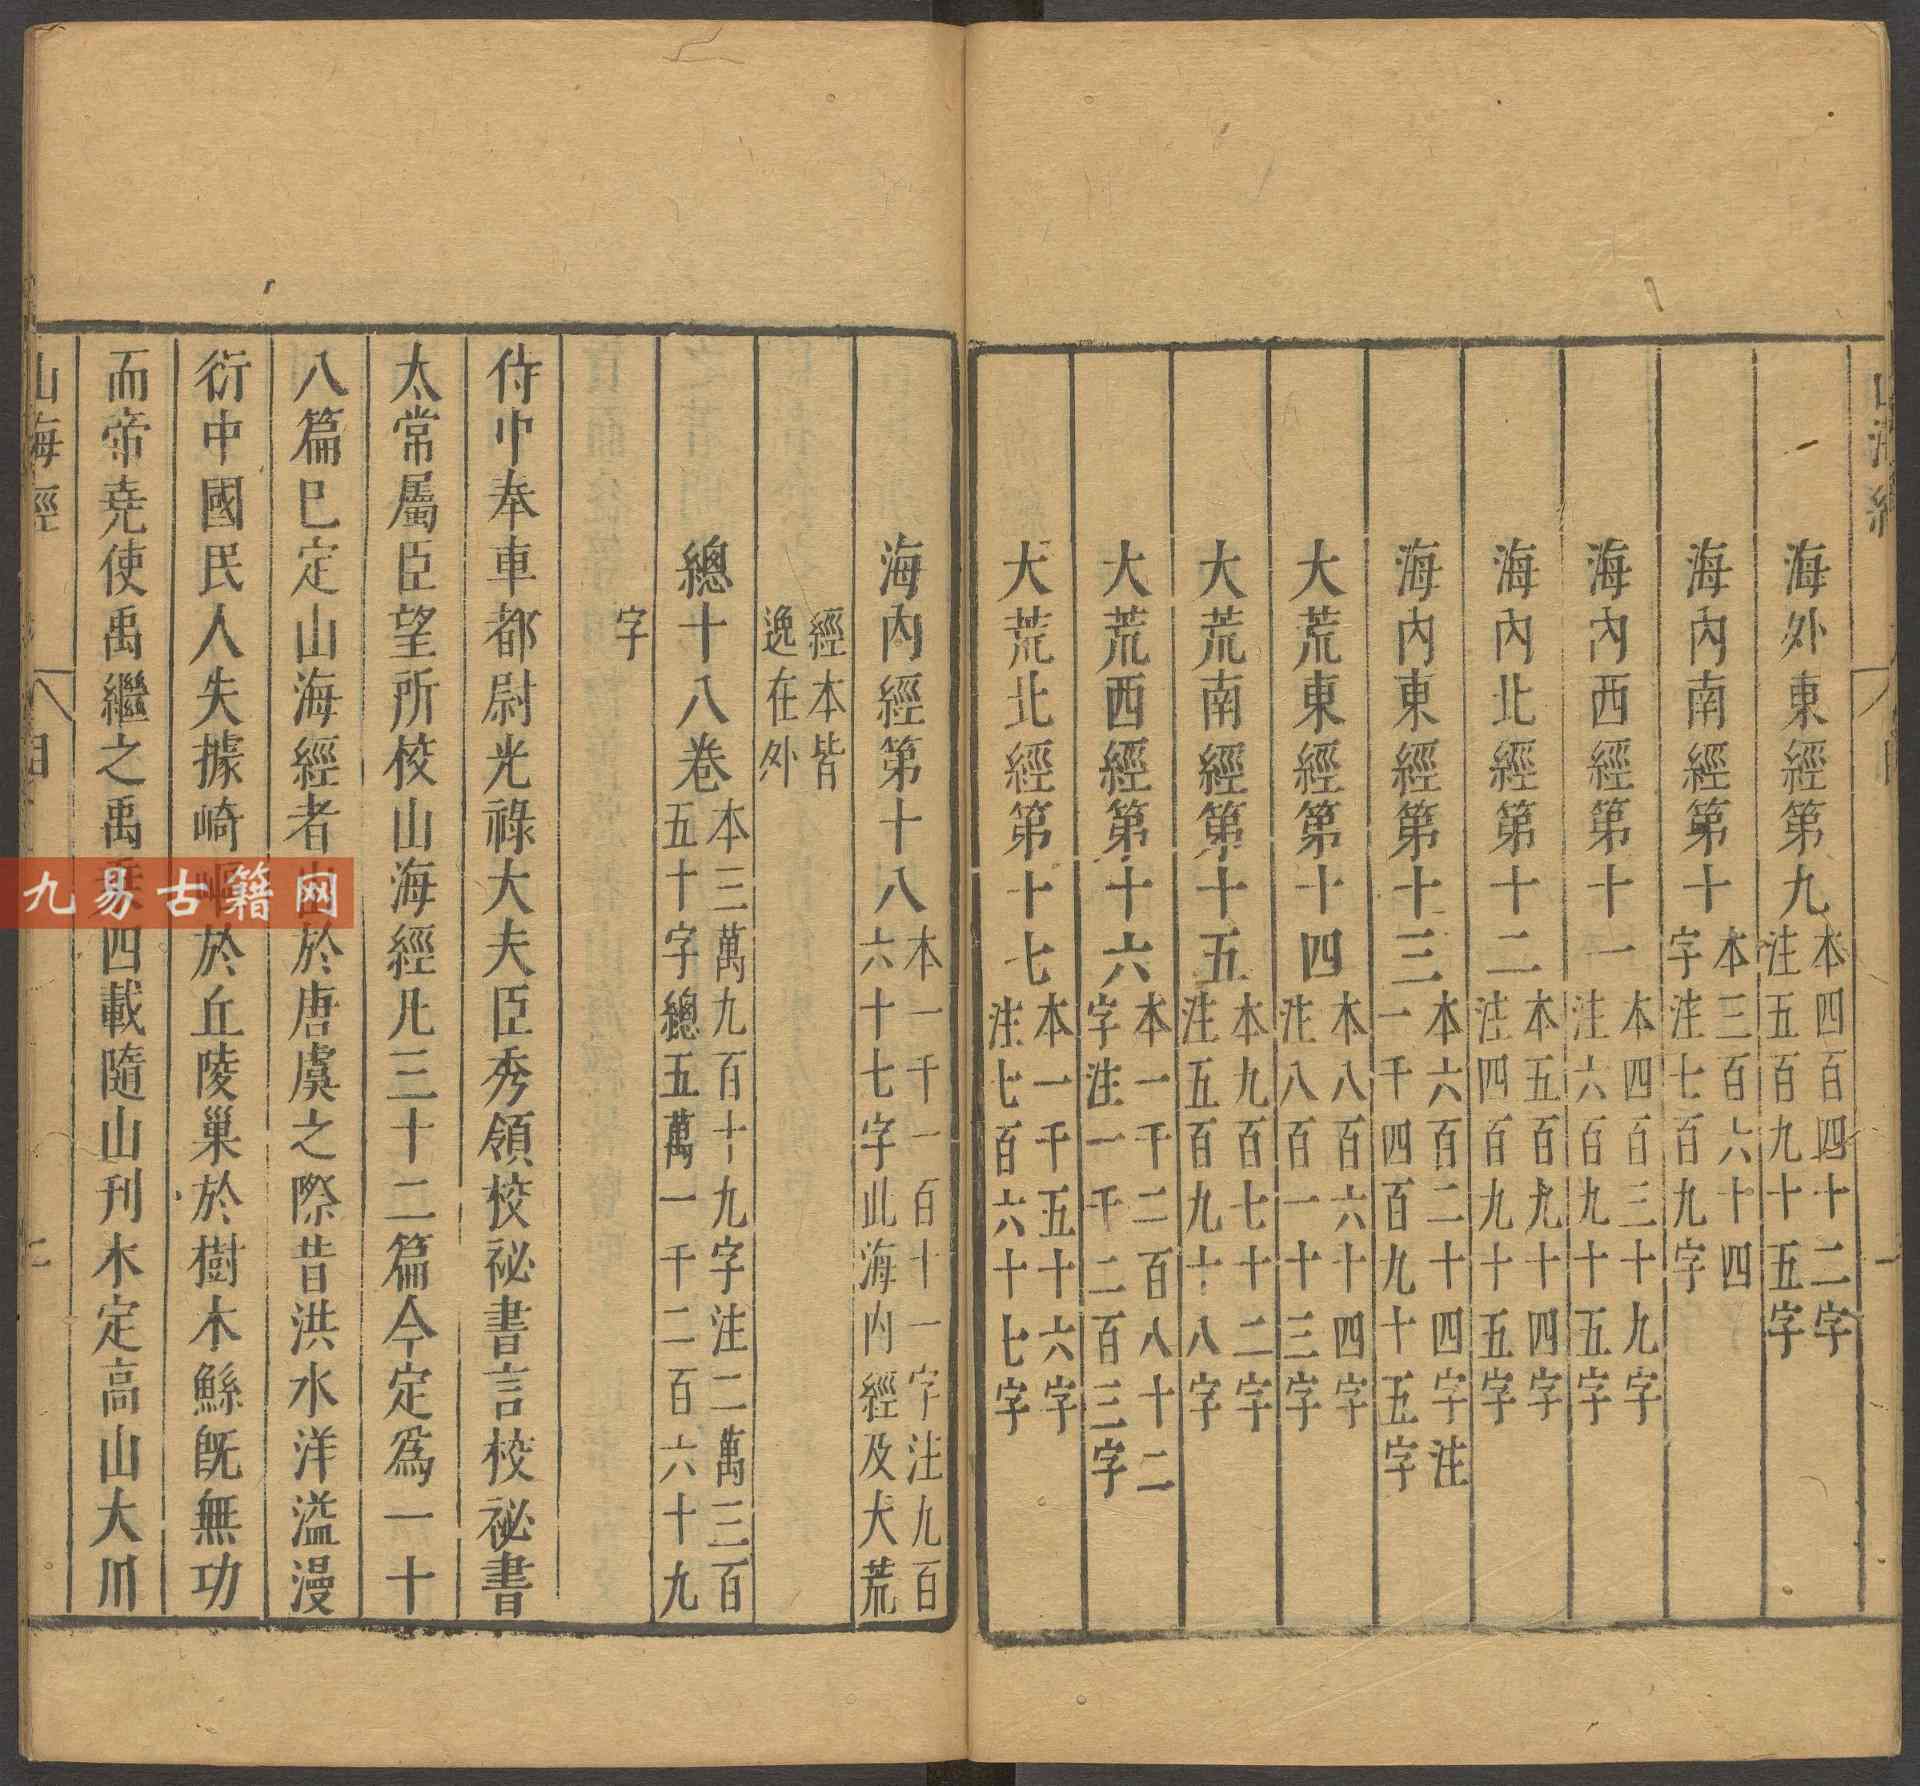 山海經
目
一
海外東經第九 本四百四十二字 注五百九十五字
海內南經第十 本三百六十四 字注七百九字
海內西經第十一 本四百三十九字 注六百九十五字
海內北經第十二 本五百九十四字 注四百九十五字
海內東經第十三 本六百二十四字注 一千四百九十五字
大荒東經第十四 本八百六十四字 注八百一十三字
大荒南經第十五 本九百七十二字 注五百九十八字
大荒西經第十六 本一千二百八十二 字注一千二百三字
大荒北經第十七 本一千五十六字 注七百六十七字
海內經第十八 本一千一百十一字注九百 六十七字此海內經及大荒
經本皆 逸在外
總十八卷 本三萬九百十九字注二萬三百 五十字總五萬一千二百六十九
字
侍中奉車都尉光祿大夫臣秀領校祕書言校祕書
太常屬臣望所校山海經凡三十二篇今定爲一十
八篇已定山海經者出於唐虞之際昔洪水洋溢漫
衍中國民人失據崎嶇於丘陵巢於樹木鯀旣無功
而帝堯使禹繼之禹乘四載隨山刊木定高山大川
山海經
目
二
九易古籍网